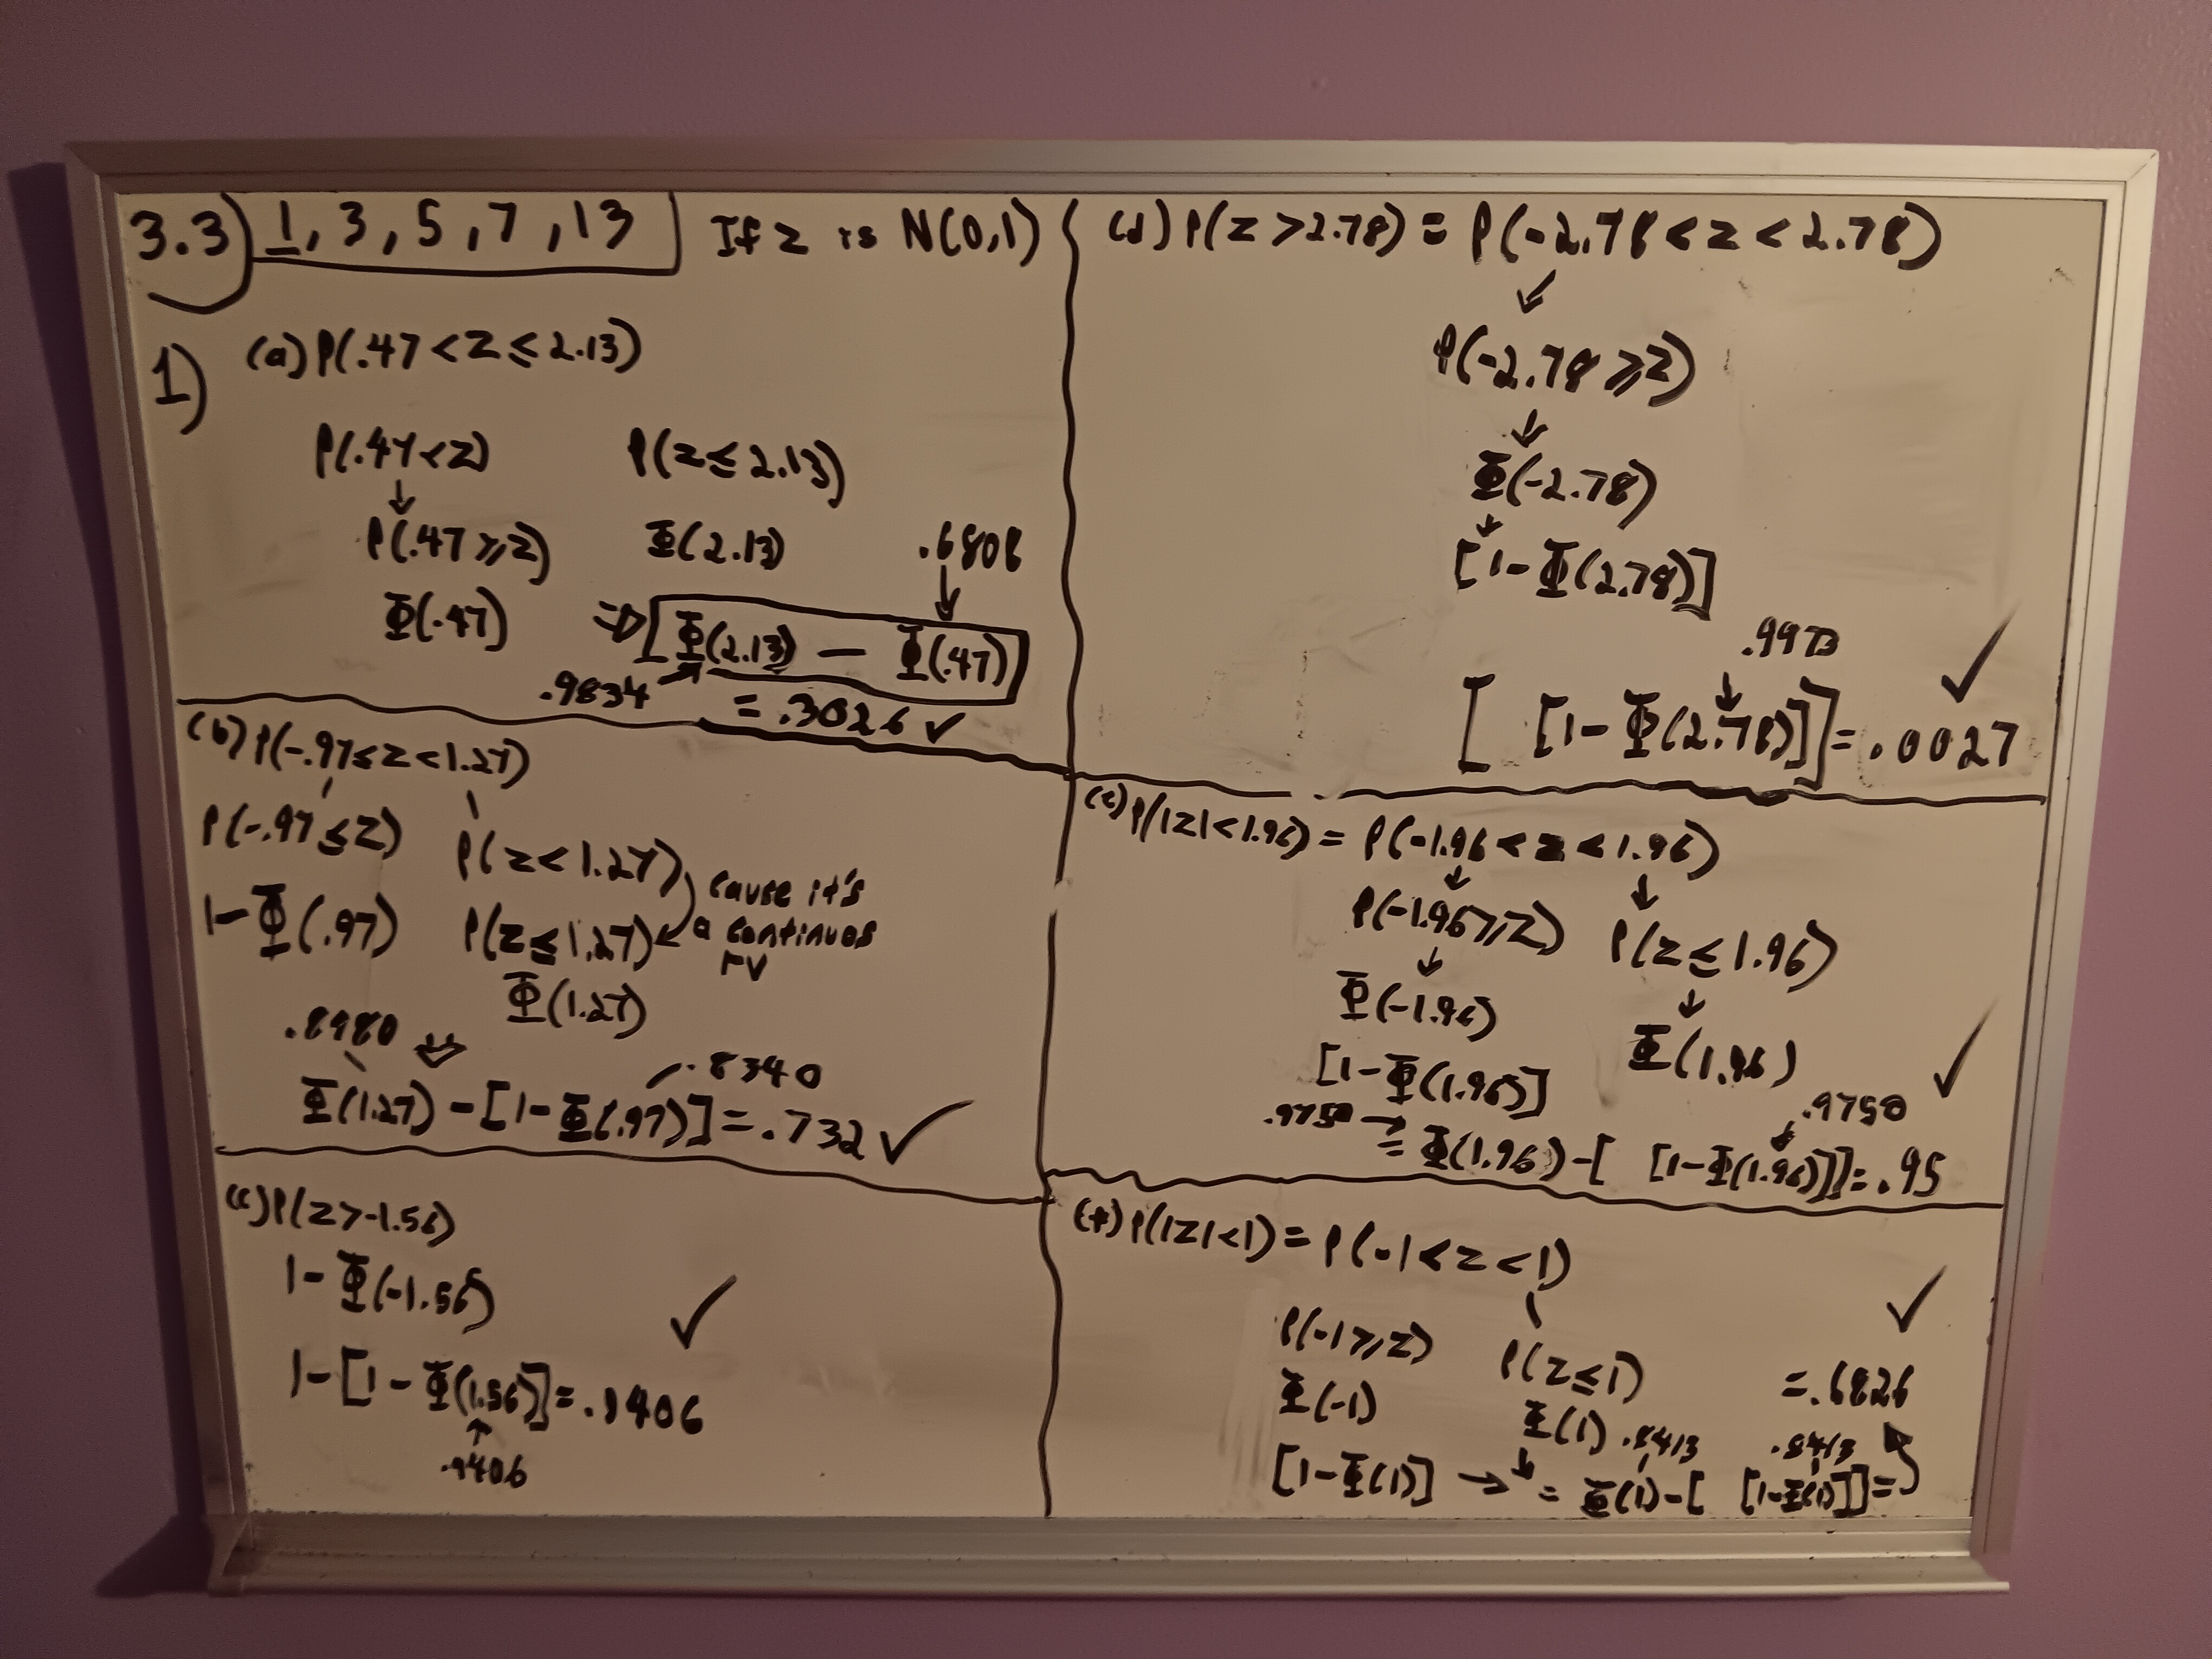 3.3) 1, 3, 5, 7, 13 If z is N(0,1)
1) (a) P(.47 < z ≤ 2.13)
P(.47 < z) P(z ≤ 2.13)
↓
P(.47 ≥ z) Φ(2.13) .6808
↓
Φ(.47) ⇒ [Φ(2.13) - Φ(.47)]
.9834 ↗ = .3026 ✓
(b) P(-.97 ≤ z < 1.27)
P(-.97 ≤ z) P(z < 1.27)
cause it's
1-Φ(.97) P(z ≤ 1.27) ← a continuos
rv
Φ(1.27)
.8980 ⇓
.8340
Φ(1.27) - [1-Φ(.97)] = .732 ✓
(c) P(z > -1.56)
1-Φ(-1.56) ✓
1-[1-Φ(1.56)] = .9406
↑
.9406
(d) P(z > 2.78) = P(-2.78 < z < 2.78)
↓
P(-2.78 ≥ z)
↓
Φ(-2.78)
↓
[1-Φ(2.78)]
.9973
↓ ✓
[ [1-Φ(2.78)]] = .0027
(e) P(|z| < 1.96) = P(-1.96 < z < 1.96)
↓ ↓
P(-1.96 ≥ z) P(z ≤ 1.96)
↓ ↓
Φ(-1.96) Φ(1.96)
[1-Φ(1.96)] ✓
.9750 → .9750
↓
= Φ(1.96) - [ [1-Φ(1.96)]] = .95
(f) P(|z| < 1) = P(-1 < z < 1)
✓
P(-1 ≥ z) P(z ≤ 1) = .6826
Φ(-1) Φ(1) .8413 .8413
[1-Φ(1)] → ↓ = Φ(1) - [ [1-Φ(1)]] =